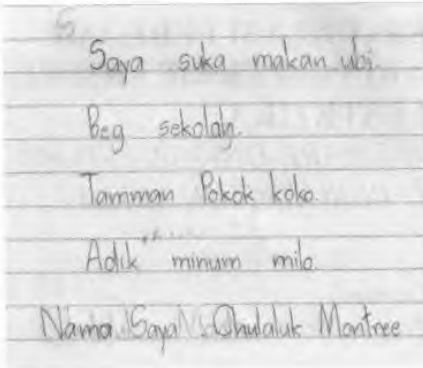 Saya suka makan ubi.
Beg sekolah.
Tamman Pokok koko.
Adik minum milo.
Nama Saya Chulaluk Montree